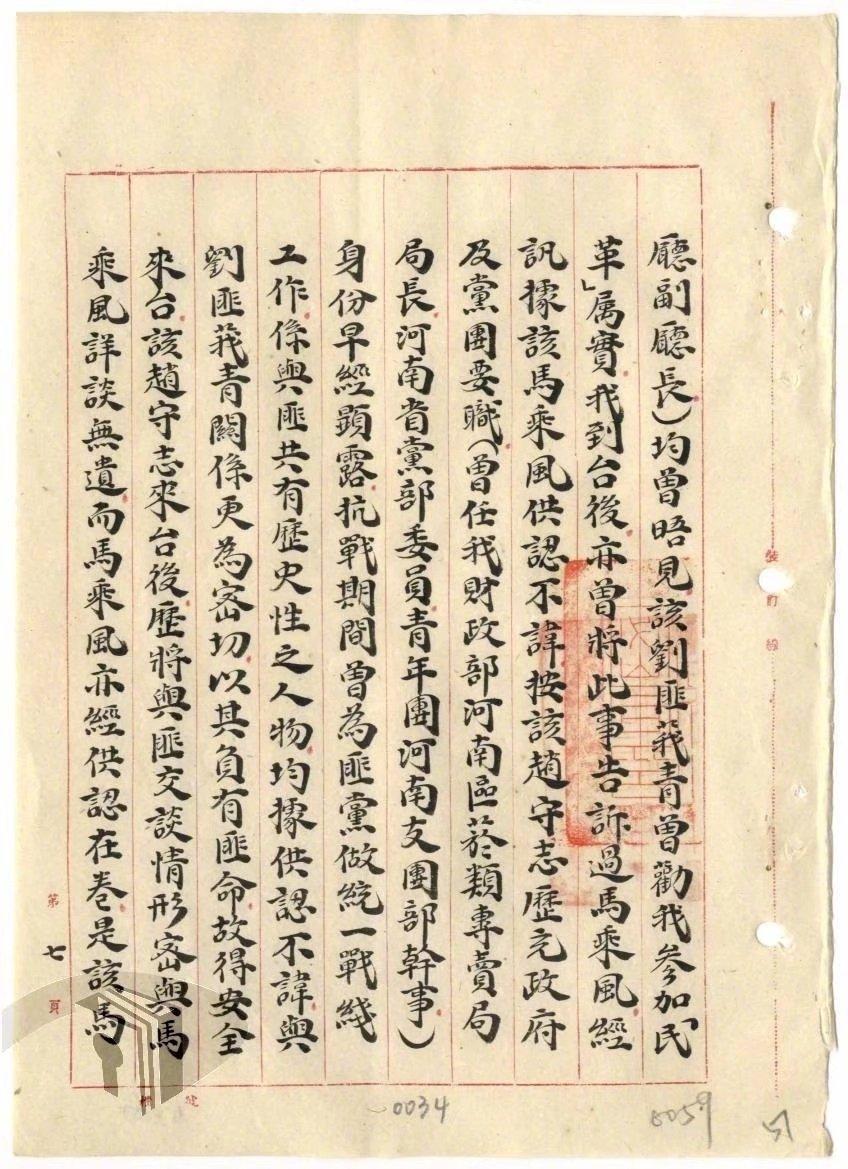 廳副廳長)均曾晤見該劉匪莪青曾勸我參加「民
革」属實我到台後亦曾將此事告訴過馬乘風經
訊據該馬乘風供認不諱按該趙守志歷充政府
及黨團要職(曾任我財政部河南區菸類專賣局
局長河南省黨部委員青年團河南支團部幹事)
身份早經顕露抗戰期間曾為匪黨做統一戰綫
工作係與匪共有歷史性之人物均據供認不諱與
劉匪莪青関係更為密切以其負有匪命故得安全
來台該趙守志來台後歷將與匪交談情形密與馬
乘風詳談無遺而馬乘風亦經供認在卷是該馬
裝訂線
第七頁
0034
0059